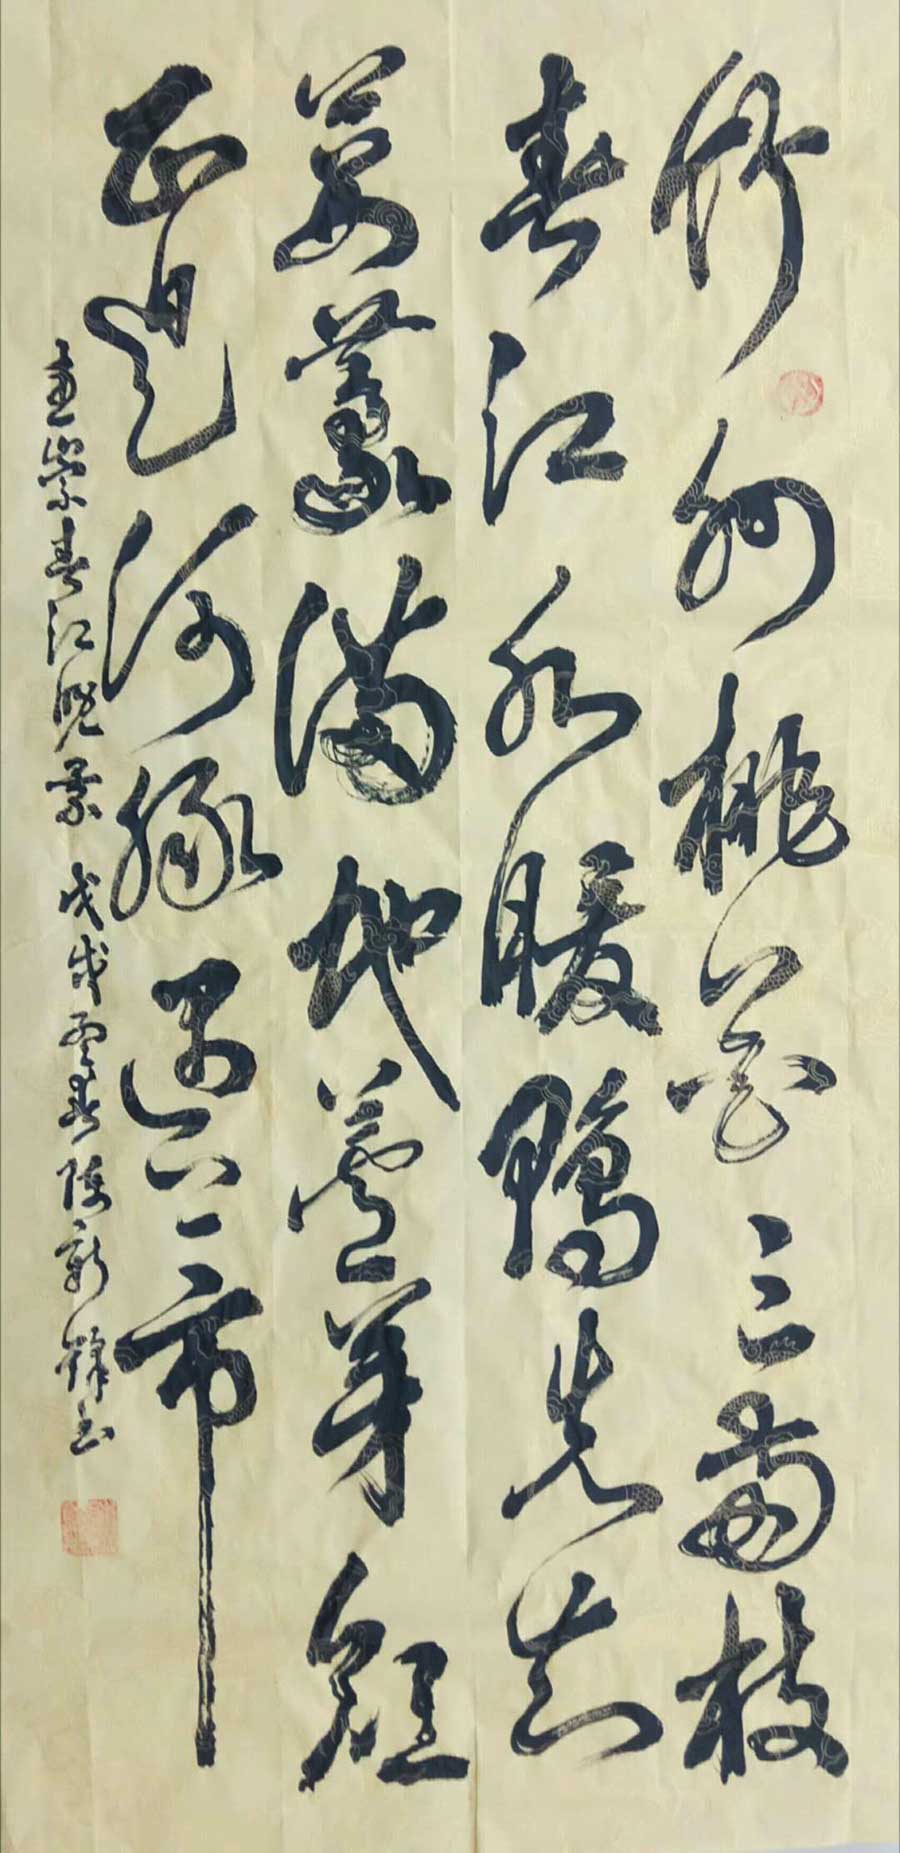 竹外桃花三两枝
春江水暖鸭先知
蒌蒿满地芦芽短
正是河豚上市
惠崇春江晚景 戊戌春 陈新锋书